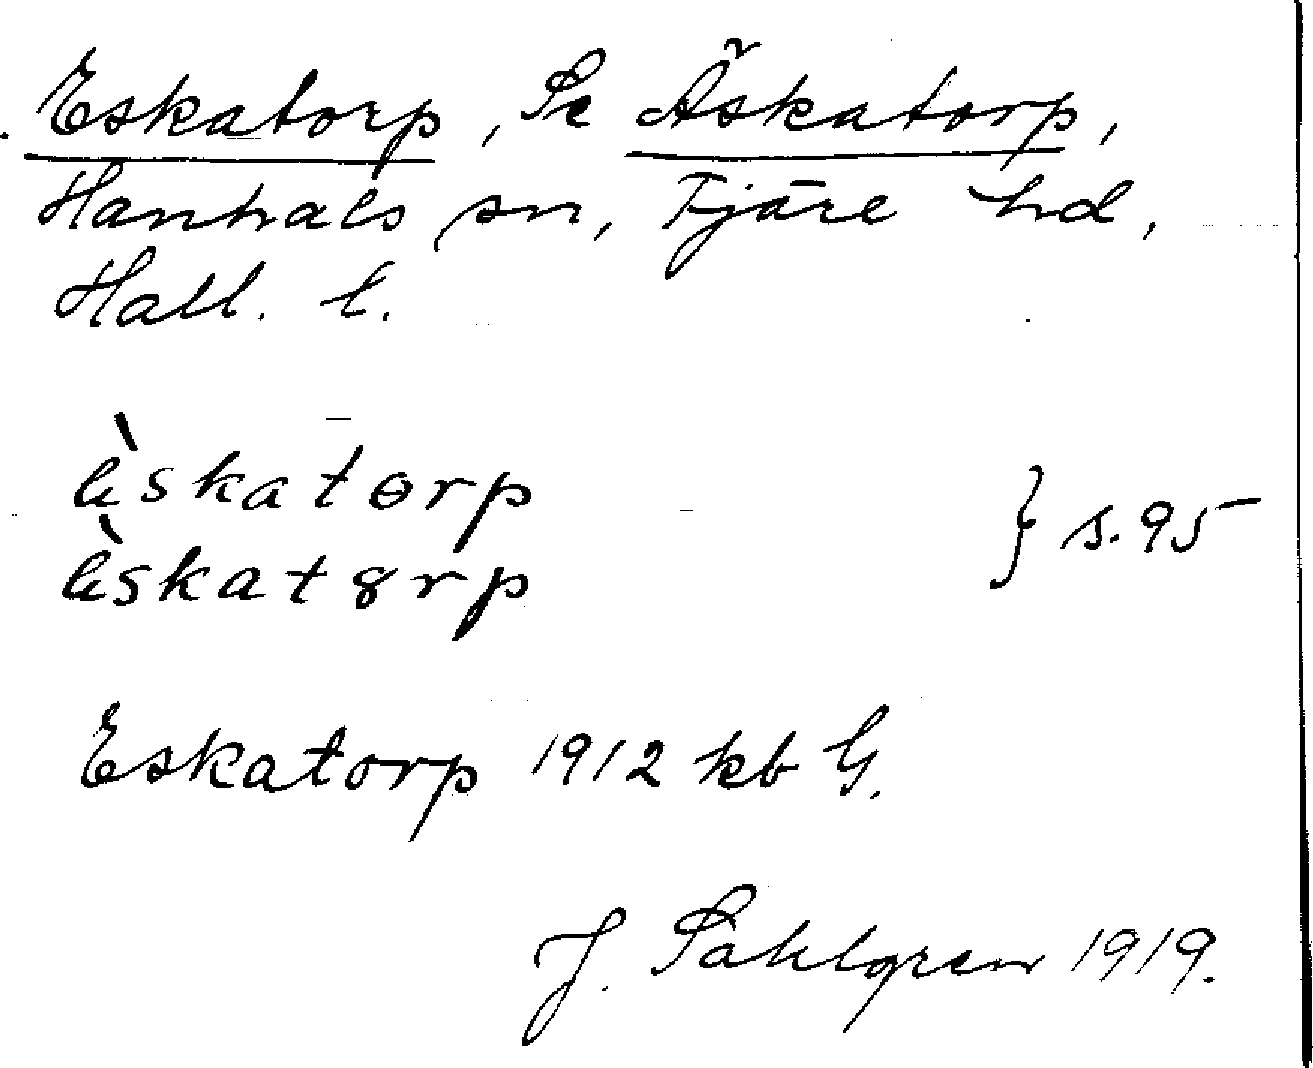 Eskatorp, Se Äskatorp,
Hanhals sn, Fjäre hd,
Hall. l.
èskatɵrp
èskat8rp } s. 95
Eskatorp 1912 kb G.
J. Sahlgren 1919.